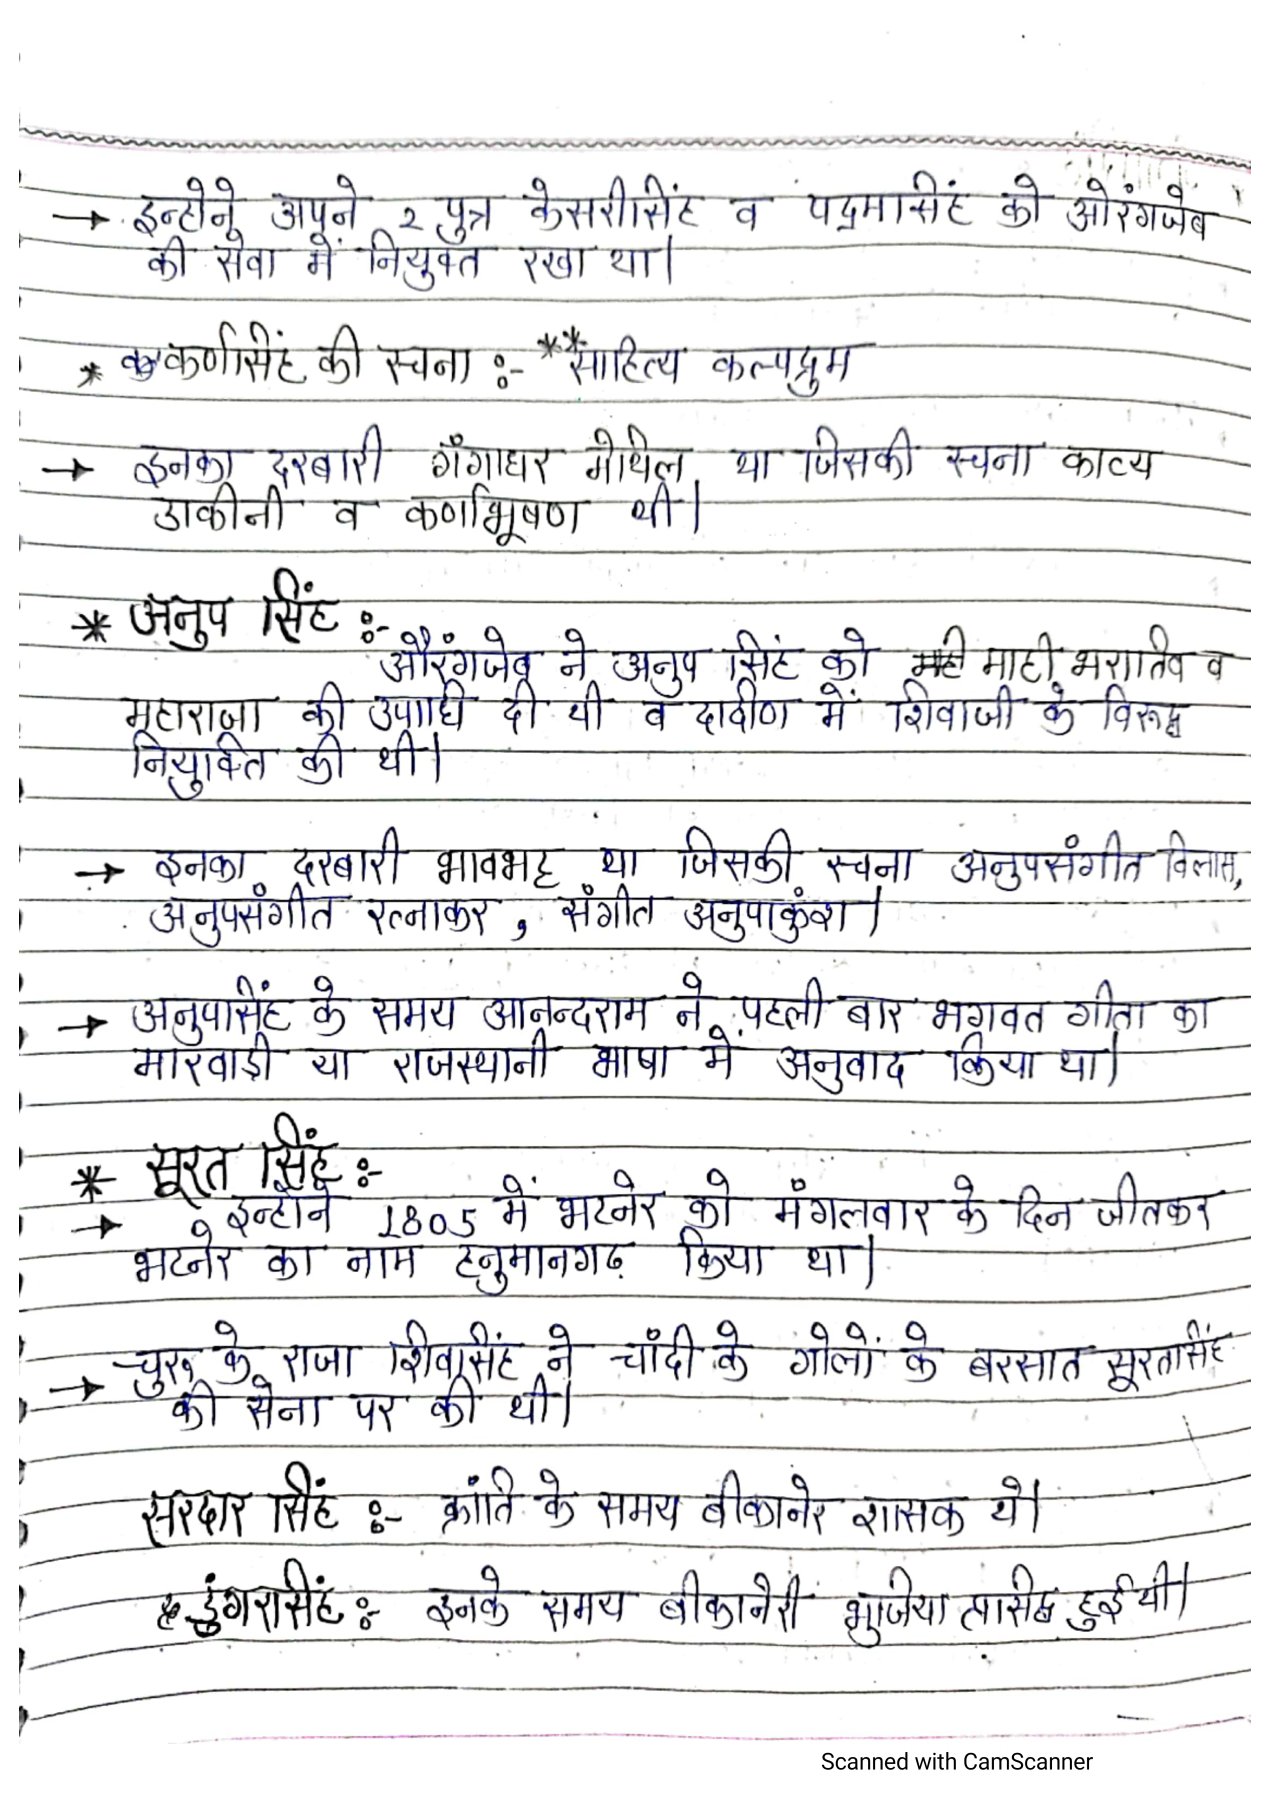 → इन्होने अपने 2 पुत्र केसरीसिंह व पद्मसिंह को औरंगजेब
की सेवा में नियुक्त रखा था।
* कर्णसिंह की रचना :- **साहित्य कल्पद्रुम
→ इनका दरबारी गँगाधर मैथिल था जिसकी रचना काव्य
डाकीनी व कर्णभूषण थी।
* अनुप सिंह :-
औरंगजेब ने अनुप सिंह को माही भरातिव व
महाराजा की उपाधि दी थी व दक्षीण में शिवाजी के विरुद्ध
नियुक्ति की थी।
→ इनका दरबारी भावभट्ट था जिसकी रचना अनुपसंगीत विलास,
अनुपसंगीत रत्नाकर, संगीत अनुपाकुंश।
→ अनुपसिंह के समय आनन्दराम ने पहली बार भगवत गीता का
मारवाड़ी या राजस्थानी भाषा मे अनुवाद किया था।
* सूरत सिंह :-
→ इन्होने 1805 में भटनेर को मंगलवार के दिन जीतकर
भटनेर का नाम हनुमानगढ़ किया था।
→ चुरू के राजा शिवसिंह ने चाँदी के गोलों के बरसात सूरतसिंह
की सेना पर की थी।
सरदार सिंह :- क्रांति के समय बीकानेर शासक थे।
डुंगरसिंह :- इनके समय बीकानेरी भुजिया प्रसिद्ध हुई थी।
Scanned with CamScanner